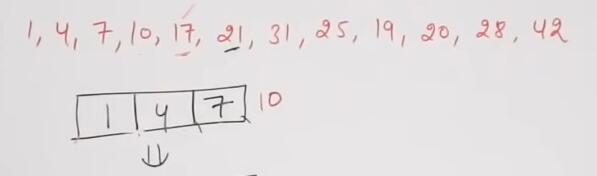 1, 4, 7, 10, 17, 21, 31, 25, 19, 20, 28, 42
1 4 7 10